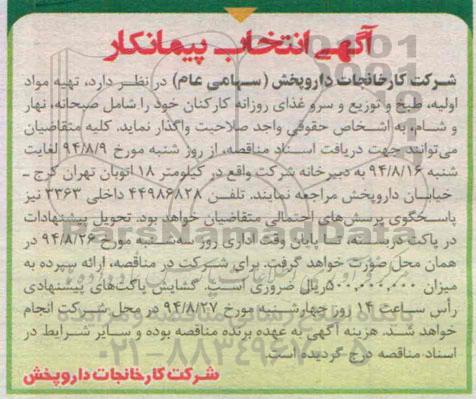 آگهی انتخاب پیمانکار
شرکت کارخانجات داروپخش (سهامی عام) در نظر دارد، تهیه مواد
اولیه، طبخ و توزیع و سرو غذای روزانه کارکنان خود را شامل صبحانه، نهار
و شام، به اشخاص حقوقی واجد صلاحیت واگذار نماید. کلیه متقاضیان
می‌توانند جهت دریافت اسناد مناقصه، از روز شنبه مورخ ۹۴/۸/۹ لغایت
شنبه ۹۴/۸/۱۶ به دبیرخانه شرکت واقع در کیلومتر ۱۸ اتوبان تهران کرج ـ
خیابان داروپخش مراجعه نمایند. تلفن ۴۴۹۸۶۸۲۸ داخلی ۳۳۶۳ نیز
پاسخگوی پرسش‌های احتمالی متقاضیان خواهد بود. تحویل پیشنهادات
در پاکت دربسته، تا پایان وقت اداری روز سه‌شنبه مورخ ۹۴/۸/۲۶ در
همان محل صورت خواهد گرفت. برای شرکت در مناقصه، ارائه سپرده به
میزان ۵۰۰,۰۰۰,۰۰۰ ریال ضروری است. گشایش پاکت‌های پیشنهادی
رأس ساعت ۱۴ روز چهارشنبه مورخ ۹۴/۸/۲۷ در محل شرکت انجام
خواهد شد. هزینه آگهی به عهده برنده مناقصه بوده و سایر شرایط در
اسناد مناقصه درج گردیده است.
شرکت کارخانجات داروپخش
ParsNamadData